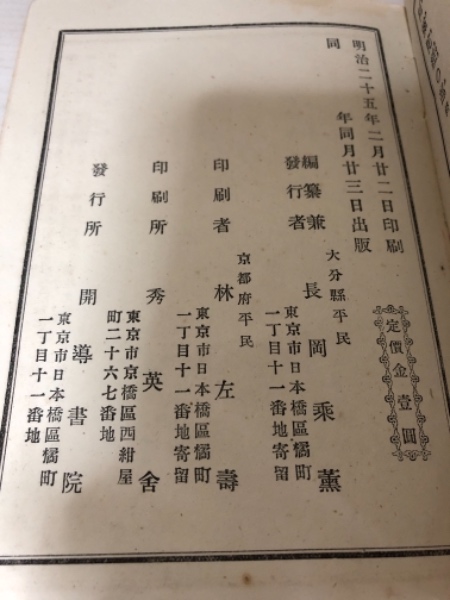 明治二十五年二月廿二日印刷
同　　　年同月廿三日出版
定價金壹圓
大分縣平民
編纂兼發行者　長岡乘薰
東京市日本橋區橘町
一丁目十一番地寄留
京都府平民
印刷者　林左壽
東京市日本橋區橘町
一丁目十一番地寄留
印刷所　秀英舍
東京市京橋區西紺屋
町二十六七番地
發行所　開導書院
東京市日本橋區橘町
一丁目十一番地